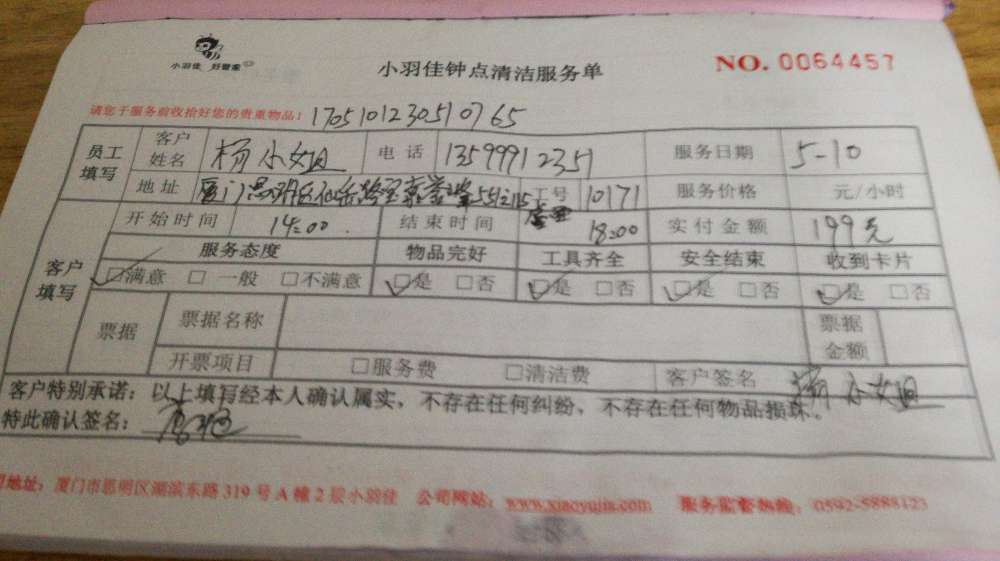 小羽佳 好管家
小羽佳钟点清洁服务单
NO. 0064457
请您于服务前收拾好您的贵重物品! 1705101230510765
员工填写 客户姓名 杨小姐 电话 13599912351 服务日期 5-10
地址 厦门思明区仙岳路 工号 10171 服务价格 元/小时
客户填写 开始时间 14:00 结束时间 18:00 实付金额 199元
服务态度 物品完好 工具齐全 安全结束 收到卡片
☑满意 □一般 □不满意 ☑是 □否 ☑是 □否 ☑是 □否 ☑是 □否
票据 票据名称 票据金额
开票项目 □服务费 □清洁费 客户签名 小姐
客户特别承诺:以上填写经本人确认属实,不存在任何纠纷,不存在任何物品损坏。
特此确认签名:
地址:厦门市思明区湖滨东路319号A幢2层小羽佳 公司网站:www.xiaoyujia.com 服务监督热线:0592-5888123